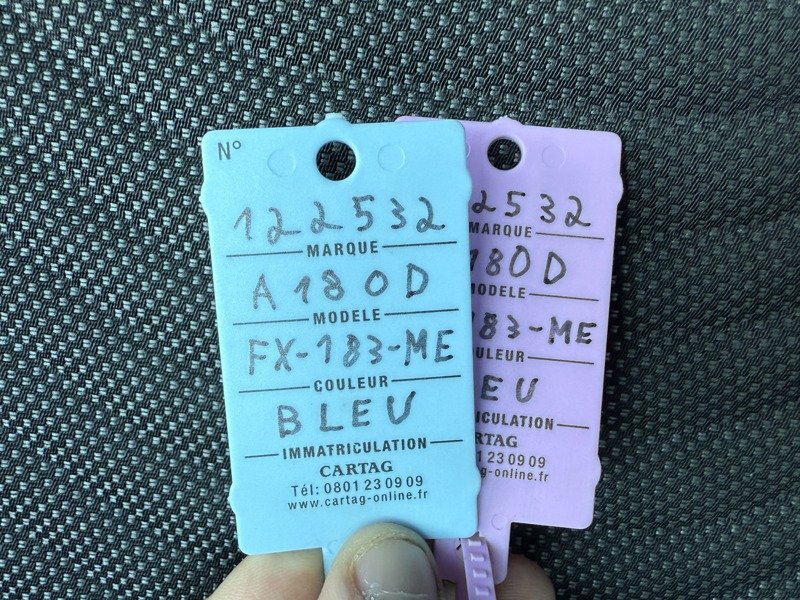 N°
122532
MARQUE
A180D
MODELE
FX-183-ME
COULEUR
BLEU
IMMATRICULATION
CARTAG
Tél: 0801 23 09 09
www.cartag-online.fr
2532
MARQUE
180D
MODELE
83-ME
ULEUR
EU
ICULATION
RTAG
1 23 09 09
g-online.fr